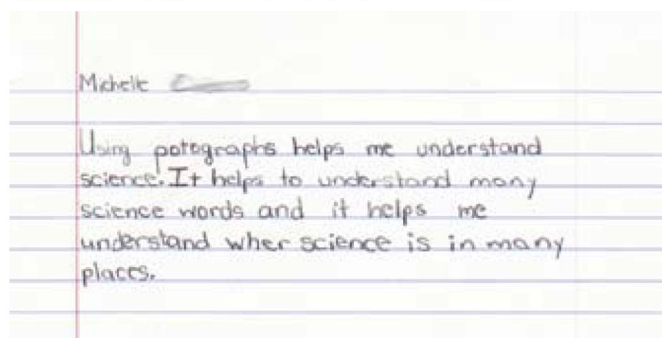 Michelle
Using potographs helps me understand
science. It helps to understand many
science words and it helps me
understand wher science is in many
places.